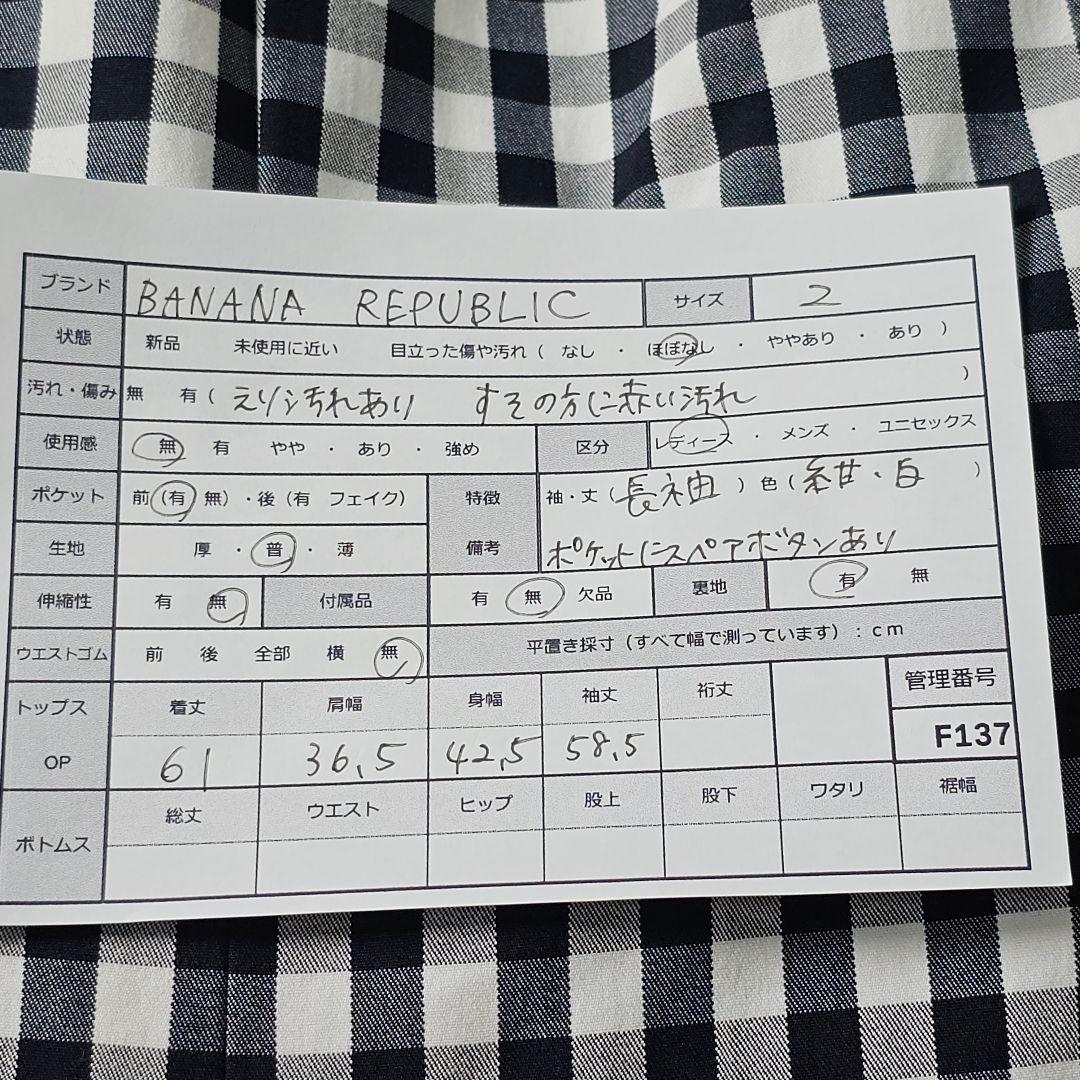 ブランド BANANA REPUBLIC サイズ 2
状態 新品 未使用に近い 目立った傷や汚れ( なし ・ ほぼなし ・ ややあり ・ あり )
汚れ・傷み 無 有( えり汚れあり すその方に赤い汚れ )
使用感 無 有 やや ・ あり ・ 強め 区分 レディース ・ メンズ ・ ユニセックス
ポケット 前(有 無)・後(有 フェイク) 特徴 袖・丈(長袖)色(紺・白 )
生地 厚 ・ 普 ・ 薄 備考 ポケットにスペアボタンあり
伸縮性 有 無 付属品 有 無 欠品 裏地 有 無
ウエストゴム 前 後 全部 横 無 平置き採寸(すべて幅で測っています):cm
トップス 着丈 肩幅 身幅 袖丈 裄丈 管理番号
OP 61 36,5 42,5 58,5 F137
ボトムス 総丈 ウエスト ヒップ 股上 股下 ワタリ 裾幅